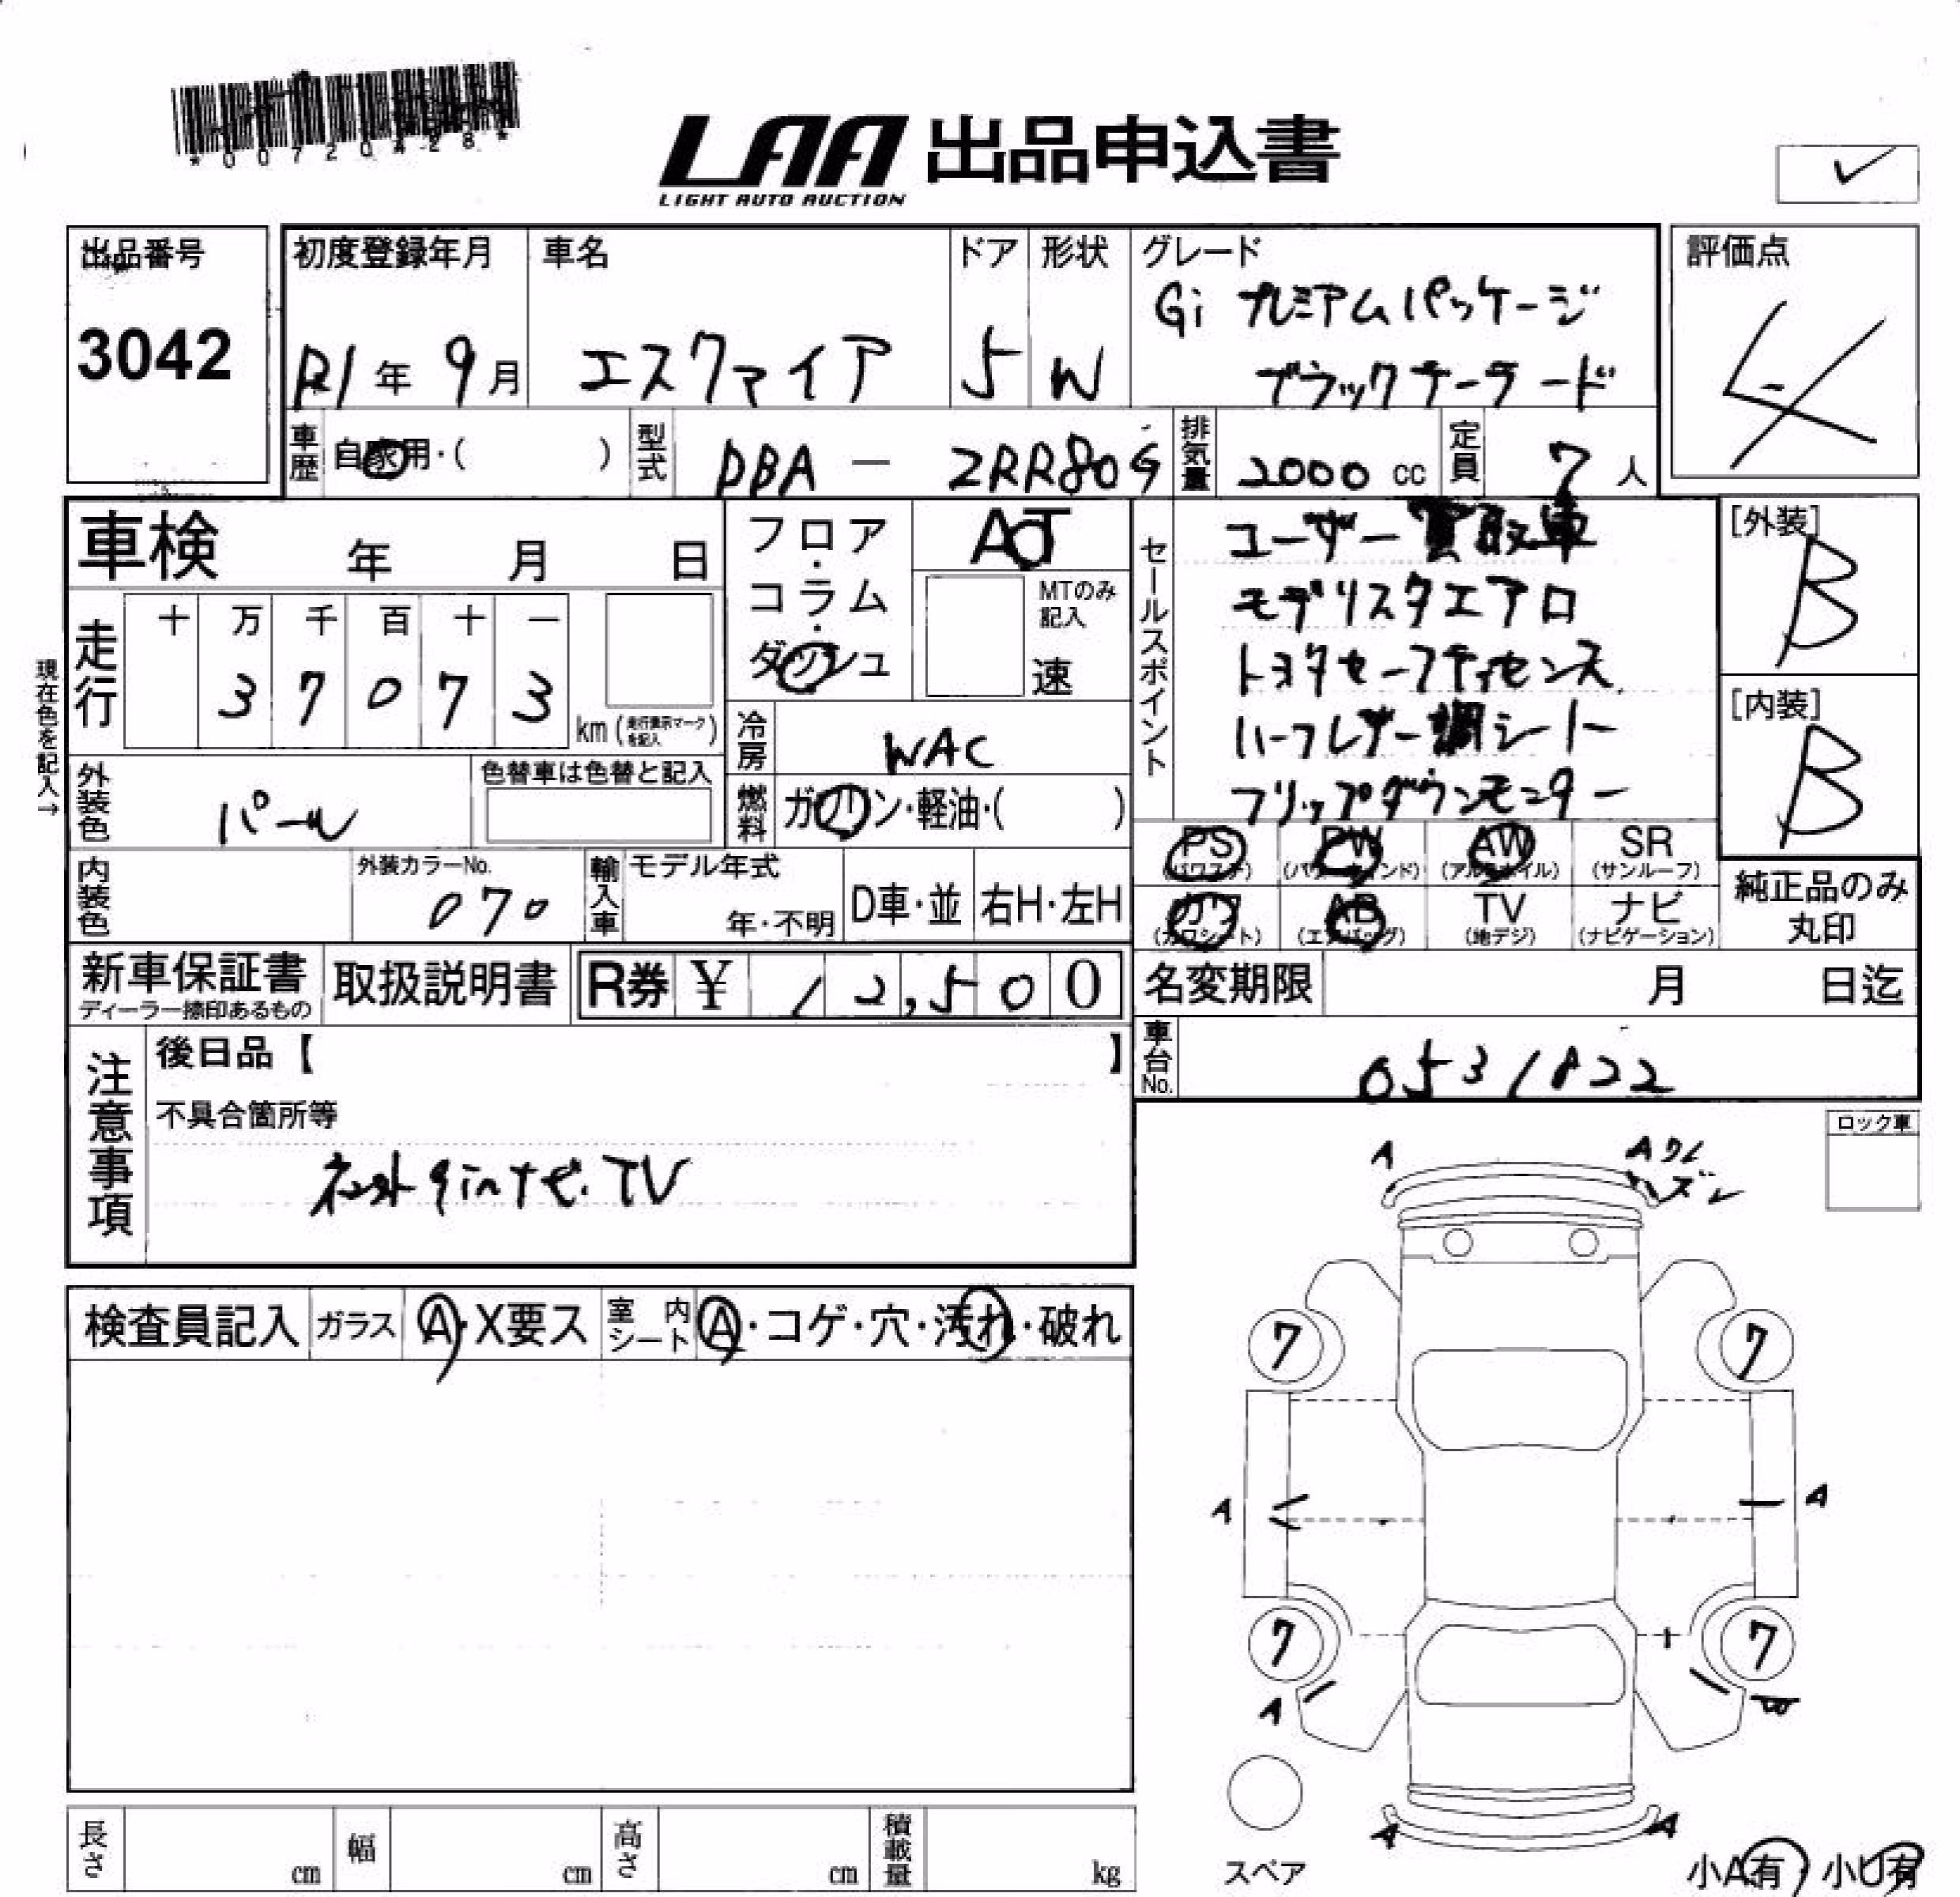 *00720428*
LAA 出品申込書
LIGHT AUTO AUCTION
出品番号
3042
初度登録年月
R1年 9月
車名
エスクァイア
ドア
5
形状
W
グレード
Gi プレミアムパッケージ
ブラックテーラード
評価点
4
車歴 自家用・( )
型式 DBA － ZRR80G
排気量 2000 cc
定員 7 人
車検 年 月 日
走行
十 万 千 百 十 一
3 7 0 7 3
km (走行表示マークを記入)
現在色を記入→
フロア・コラム・ダッシュ
AT
MTのみ記入
速
冷房 WAC
燃料 ガソリン・軽油・( )
セールスポイント
ユーザー買取車
モデリスタエアロ
トヨタセーフティセンス
ハーフレザー調シート
フリップダウンモニター
[外装]
B
[内装]
B
外装色 パール
色替車は色替と記入
内装色
外装カラーNo.
070
輸入車 モデル年式
年・不明
D車・並
右H・左H
PS (パワステ)
PW (パワーウインド)
AW (アルミホイル)
SR (サンルーフ)
カワ (カワシート)
AB (エアバッグ)
TV (地デジ)
ナビ (ナビゲーション)
純正品のみ丸印
新車保証書
ディーラー捺印あるもの
取扱説明書
R券 ¥ 12,500
名変期限 月 日迄
車台No. 0531822
注意事項
後日品【 】
不具合箇所等
TV
ロック車
検査員記入
ガラス A・X要ス
室内シート A・コゲ・穴・汚れ・破れ
A
A
ズレ
7
7
A
A
7
7
A
W
A
A
スペア
小A有・小U有
長さ cm
幅 cm
高さ cm
積載量 kg